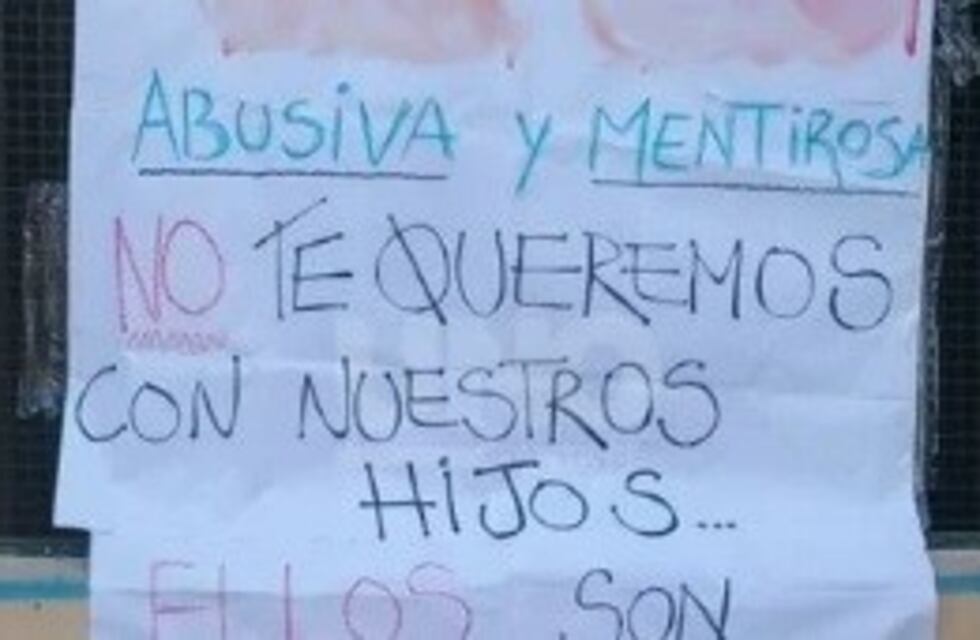 ABUSiVA y MENTiROSA
NO TE QUEREMOS
CON NUESTROS
HiJOS...
ELLOS SON